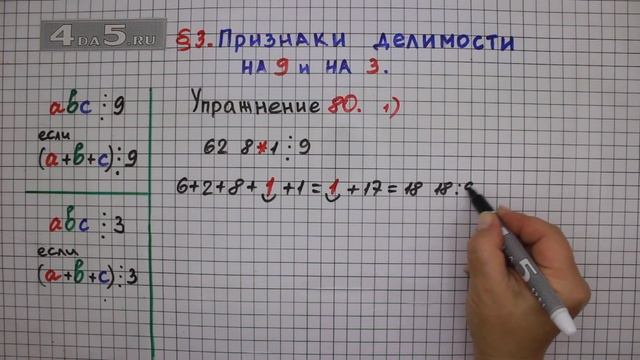 4DA5.RU
§3. Признаки делимости
на 9 и на 3.
abc ⋮ 9
если
(a+b+c) ⋮ 9
abc ⋮ 3
если
(a+b+c) ⋮ 3
Упражнение 80. 1)
62 8*1 ⋮ 9
6+2+8+1+1=1+17=18 18:9
5